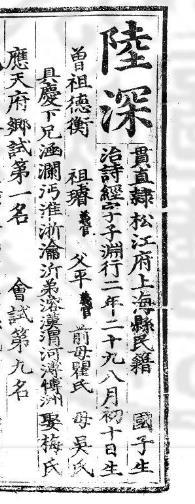 陸深
貫直隸松江府上海縣民籍 國子生
治詩經字子淵行二年二十九八月初十日生
曾祖德衡 祖璿 父平 前母瞿氏 母吳氏
具慶下兄涵瀾沔淮浙瀹沂弟溶漢渭河溥 娶梅氏
應天府鄉試第一名 會試第九名